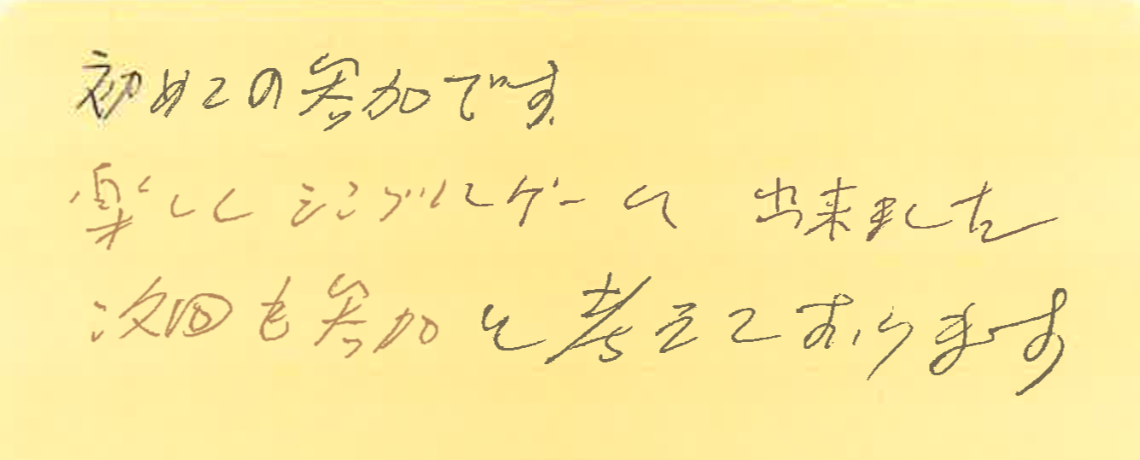 初めての参加です
楽しくシングルゲーム 出来ました
次回も参加と考えております